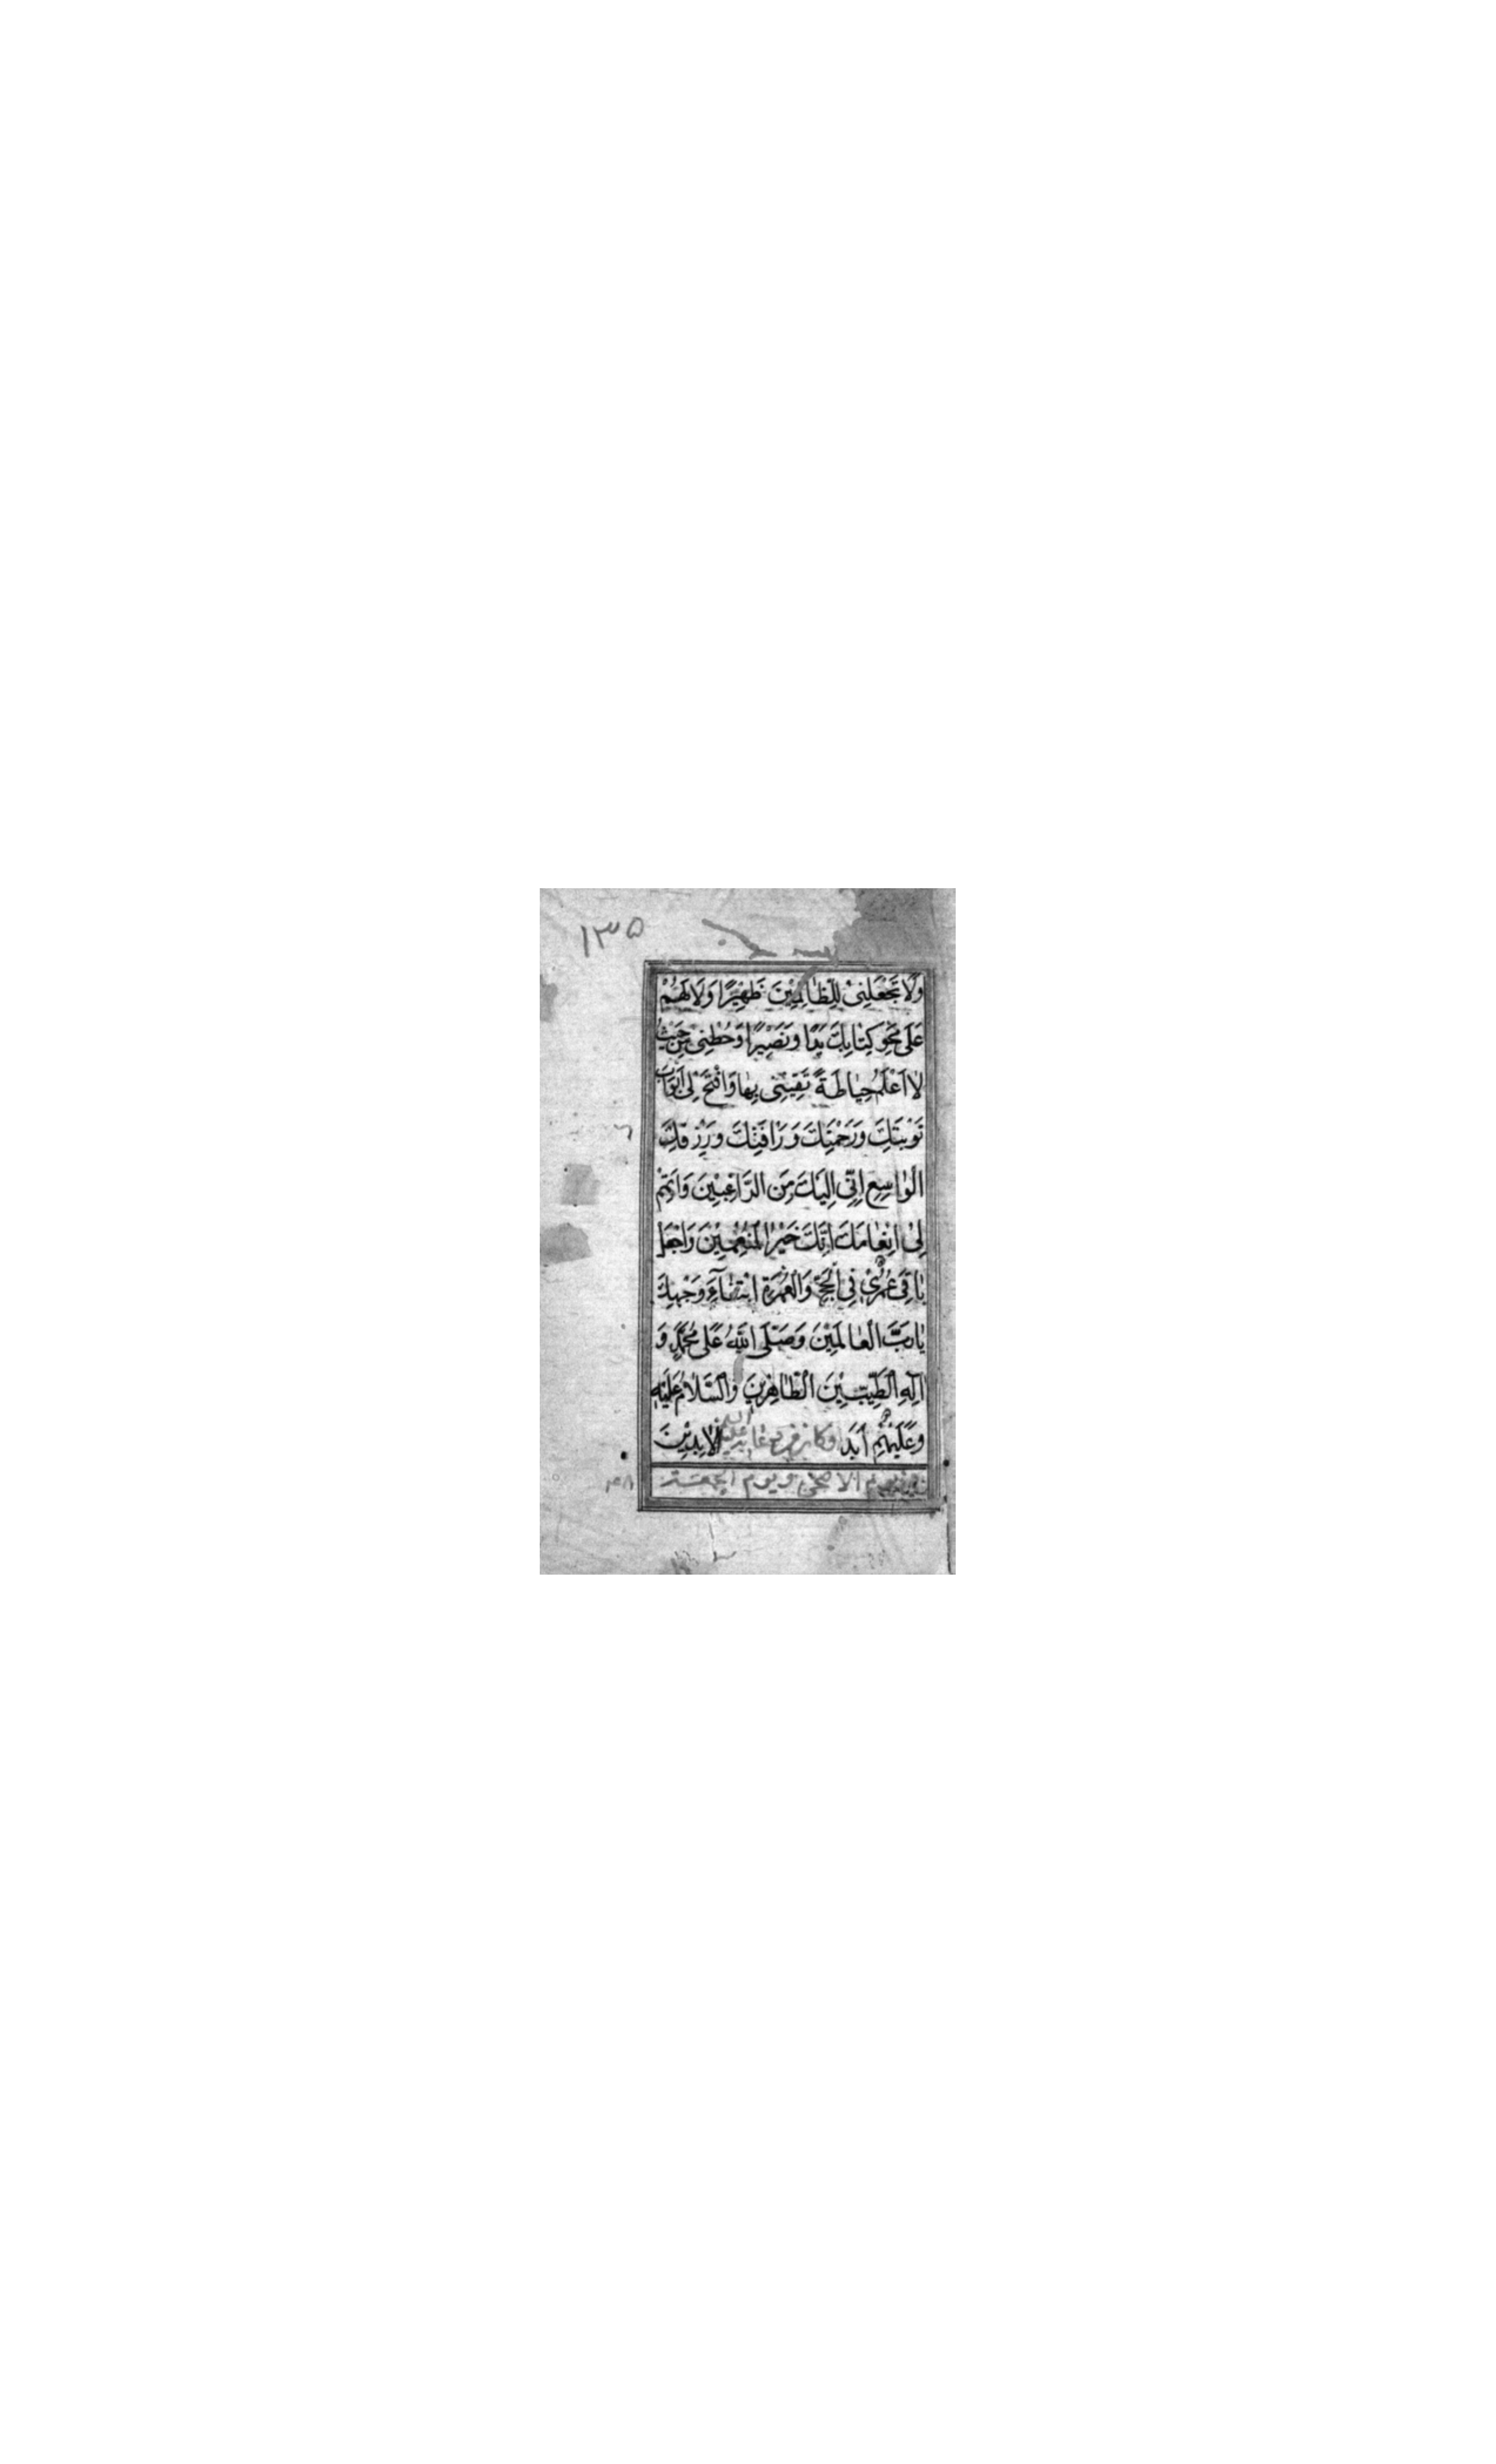 ۱۳۵
وَلَا تَجْعَلْنِیْ لِلظّٰالِمِیْنَ ظَهِیْرًا وَلَا لَهُمْ
عَلٰی مَحْوِ کِتٰابِكَ یَدًا وَنَصِیْرًا وَحُطْنِیْ مِنْ حَیْثُ
لٰا اَعْلَمُ حِیٰاطَةً تَقِیْنِی بِهٰا وَافْتَحْ لِی اَبْوَابَ
تَوْبَتِكَ وَرَحْمَتِكَ وَرَاْفَتِكَ وَرِزْقِكَ
الْوٰاسِعِ اِنِّی اِلَیْكَ مِنَ الرَّاغِبِیْنَ وَاَتْمِمْ
لِیْ اِنْعٰامَكَ اِنَّكَ خَیْرُ الْمُنْعِمِیْنَ وَاجْعَلْ
بٰاقِیَ عُمُرِیْ فِی الْحَجِّ وَالْعُمْرَةِ ابْتِغٰآءَ وَجْهِكَ
یٰا رَبَّ الْعٰالَمِیْنَ وَصَلَّی اللّٰهُ عَلٰی مُحَمَّدٍ وَ
اٰلِهِ الطَّیِّبِیْنَ الطّٰاهِرِیْنَ وَالسَّلٰامُ عَلَیْهِ
وَعَلَیْهِمْ اَبَدَ وکان من دعائه علیه السلم الْاٰبِدِیْنَ
یوم الاضحی و یوم الجمعة